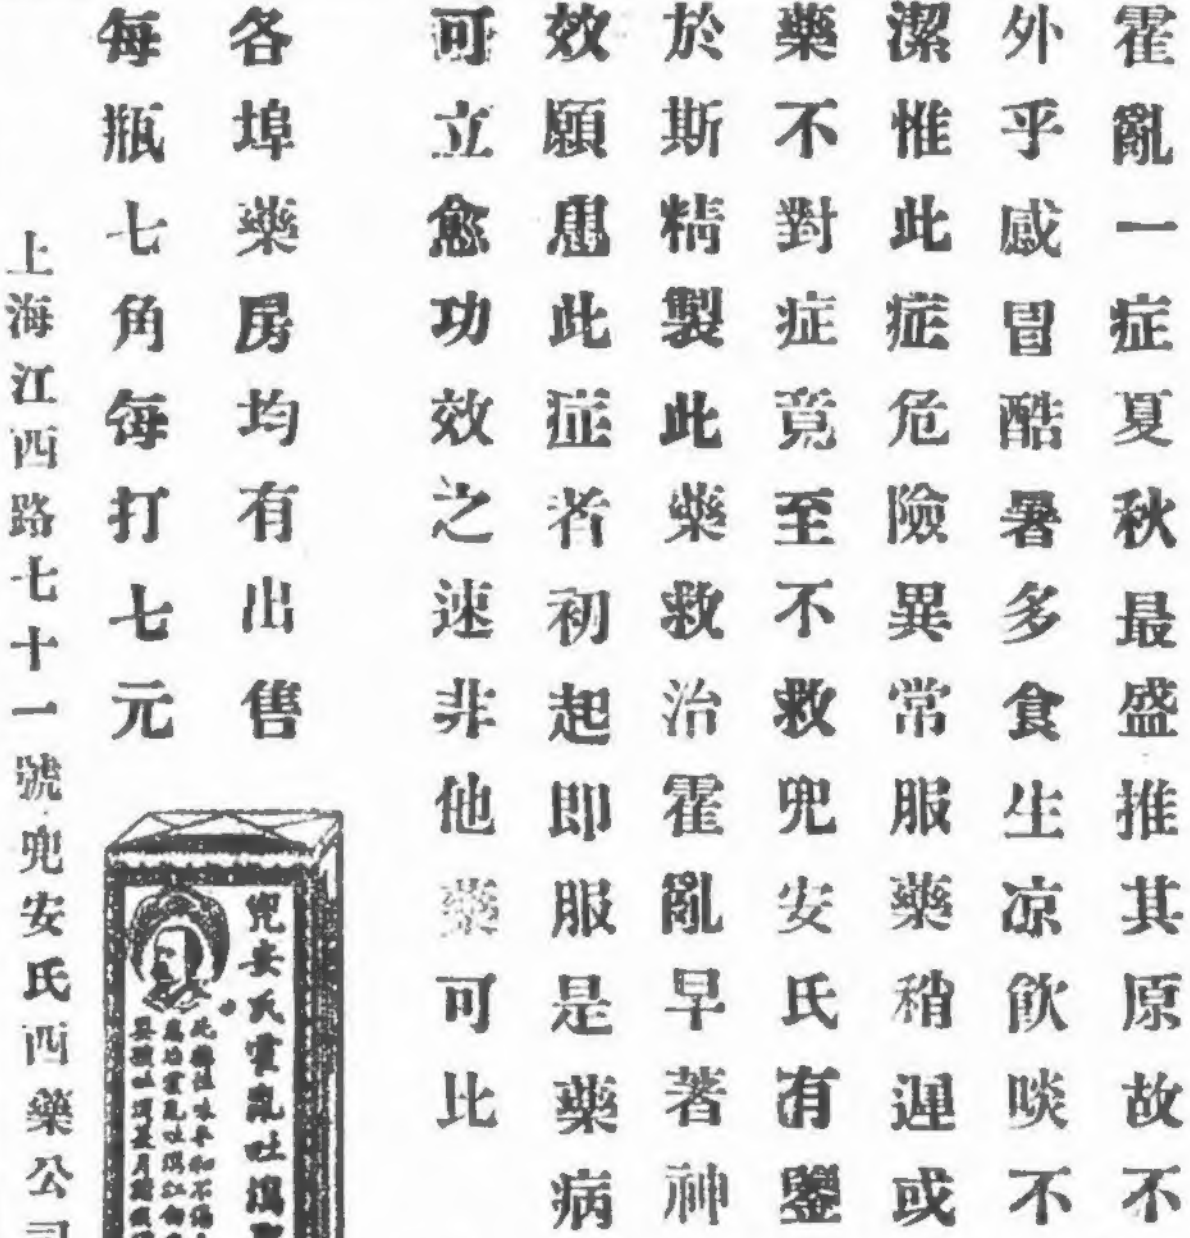 霍亂一症夏秋最盛推其原故不
外乎感冒酷暑多食生凉飲啖不
潔惟此症危險異常服藥稍遲或
藥不對症竟至不救兜安氏有鑒
於斯精製此藥救治霍亂早著神
效願患此症者初起即服是藥病
可立愈功效之速非他藥可比
各埠藥房均有出售
每瓶七角每打七元
兜安氏霍亂吐瀉
上海江西路七十一號兜安氏西藥公司